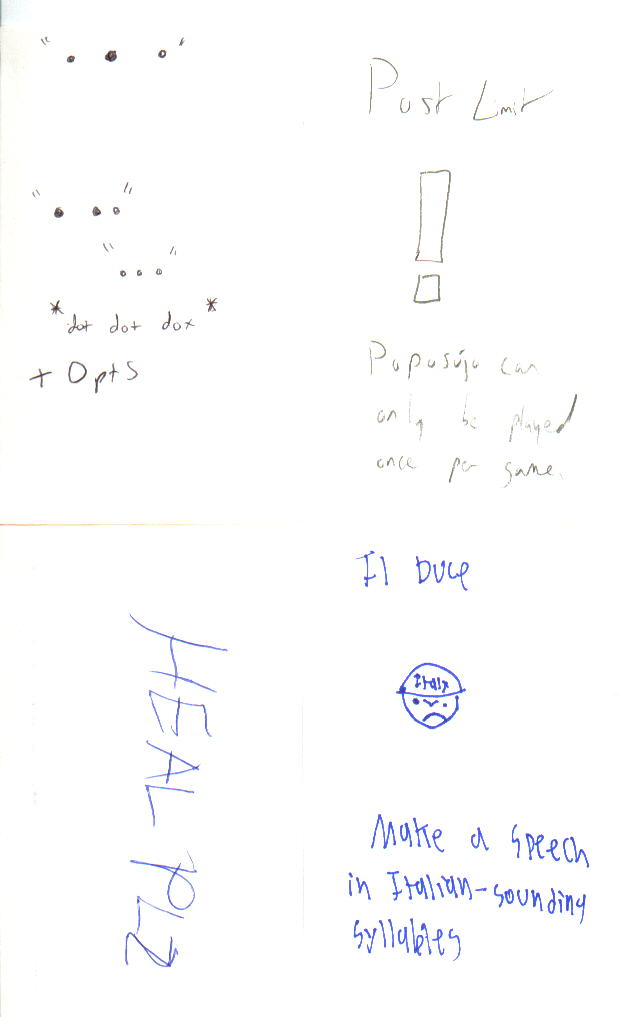 ". . ."
". . ."
". . ."
*dot dot dox*
+ 0ptS
Post Limit
!
can
only be played
once per game.
HEAL PLZ
Il Duce
Italy
Make a speech
in Italian-sounding
syllables